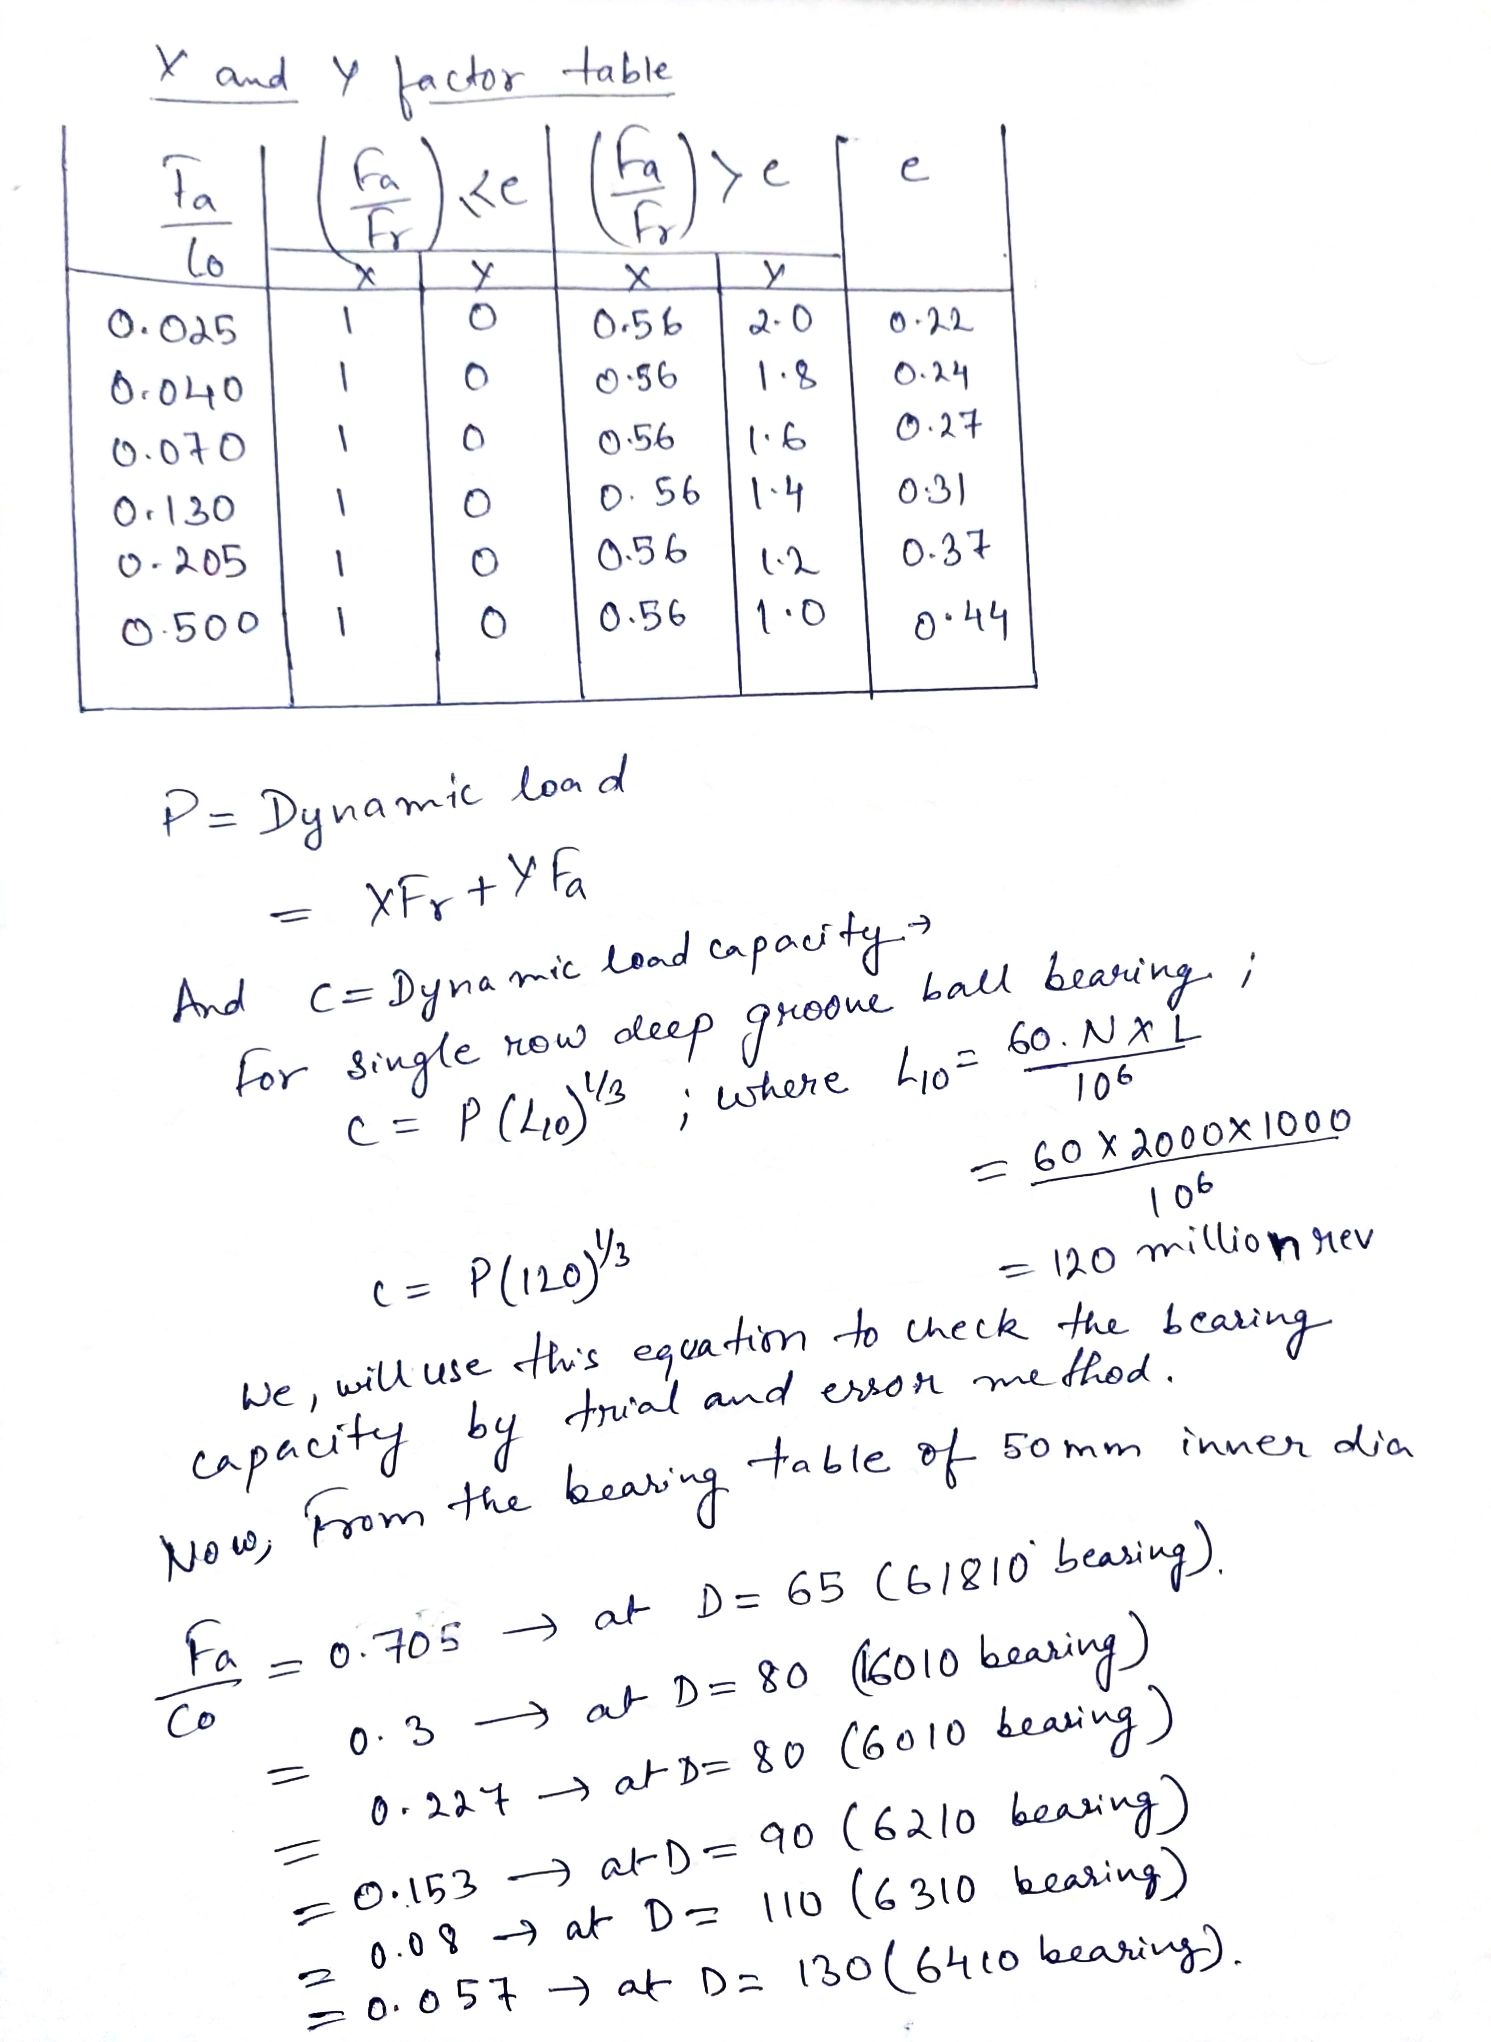 X and Y factor table
Fa/Co | (Fa/Fr) ≤ e | (Fa/Fr) > e | e
X | Y | X | Y
0.025 | 1 | 0 | 0.56 | 2.0 | 0.22
0.040 | 1 | 0 | 0.56 | 1.8 | 0.24
0.070 | 1 | 0 | 0.56 | 1.6 | 0.27
0.130 | 1 | 0 | 0.56 | 1.4 | 0.31
0.205 | 1 | 0 | 0.56 | 1.2 | 0.37
0.500 | 1 | 0 | 0.56 | 1.0 | 0.44
P = Dynamic load
= XFr + YFa
And C = Dynamic load capacity →
For single row deep groove ball bearing ;
C = P (L10)^1/3 ; where L10 = 60. N x L / 10^6
= 60 x 2000 x 1000 / 10^6
= 120 million rev
C = P(120)^1/3
We, will use this equation to check the bearing
capacity by trial and error method.
Now, From the bearing table of 50 mm inner dia
Fa/Co = 0.705 → at D = 65 (61810 bearing).
= 0.3 → at D = 80 (16010 bearing)
= 0.227 → at D = 80 (6010 bearing)
= 0.153 → at D = 90 (6210 bearing)
= 0.08 → at D = 110 (6310 bearing)
= 0.057 → at D = 130 (6410 bearing).